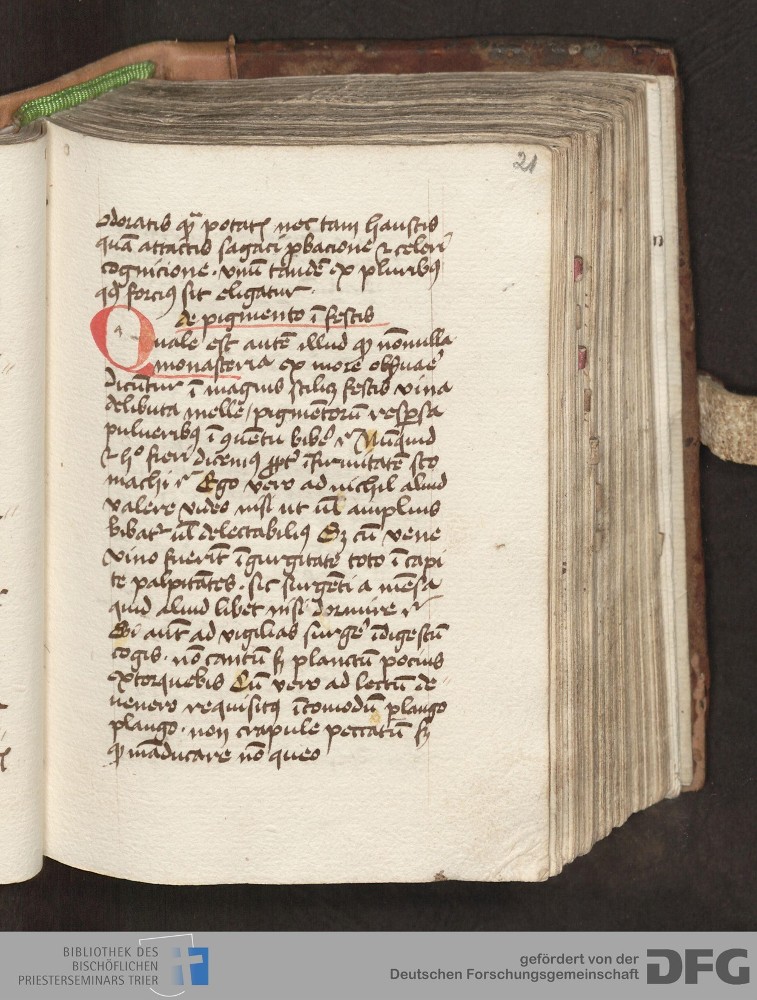 21
odoratis qm̄ potatis nec tam haustis
quā attactis sagaci ꝓbacione ⁊ celeri
cognicione · vnū tandē ex pluribꝰ
qd̄ forciꝰ sit eligatur ·
de pigmento ī festis
Quale est autē illud qd̄ nōnulla
monasteria ex more obseruare
dicūtur ī magnis scilicꝫ festis vina
delibuta melle / pigmētorū respersa
pulueribꝰ ī cōuētu bibere Nūquid
⁊ hoc fieri dicemus ꝓpter īfirmitatē sto
machi Ego vero ad nichil aliud
valere video nisi ut vel amplius
bibatur vel delectabiliꝰ Sꝫ cū vene
vino fuerīt īgurgitate toto ī capi
te palpitātes · sic surgēti a mēsa
quid aliud libet nisi dormire
Si aūt ad vigilias surgere īdigestū
cogis · nō cantū sꝫ planctū pocius
extorquebis Cū vero ad lectū de
uenero requisitꝰ īcomodū plango
plango · non crapule peccatū sꝫ
qd̄ māducare nō queo
BIBLIOTHEK DES
BISCHÖFLICHEN
PRIESTERSEMINARS TRIER
gefördert von der
Deutschen Forschungsgemeinschaft
DFG